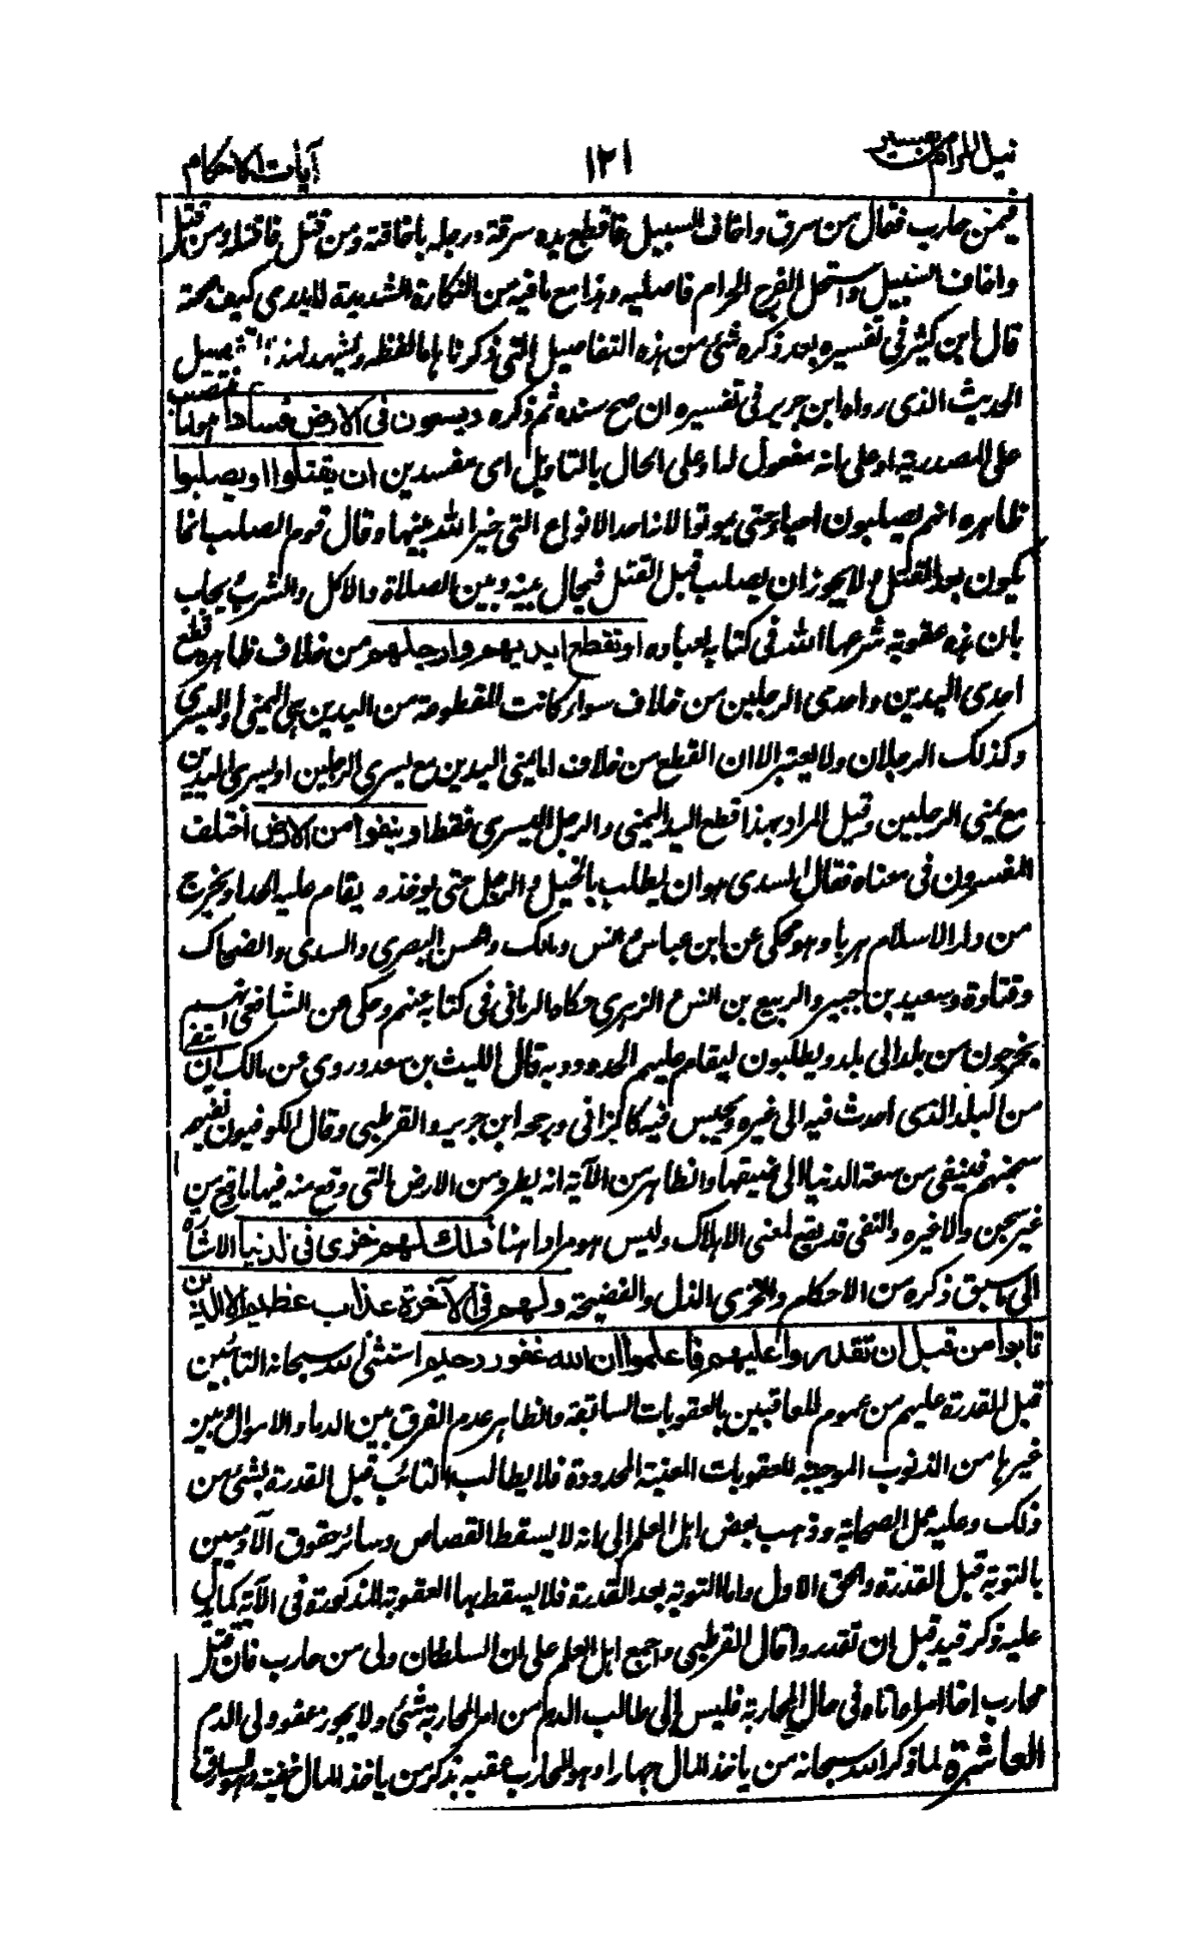 نيل المرام من تفسير ١٢١ آيات الاحكام
فيمن حارب فقال من سرق واخاف السبيل فاقطع يده سرقته ورجله باخافته ومن قتل فاقتله ومن قتل
واخاف السبيل واستحل الفرج الحرام فاصلبه وهذا مع ما فيه من النكارة الشديدة لايدرى كيف صحته
قال ابن كثير في تفسيره بعد ذكره شئ من هذه التفاصيل التي ذكرناها ما لفظه ويشهد لهذا التفصيل
الحديث الذي رواه ابن جرير في تفسيره ان صح سنده ثم ذكره ويسعون فى الارض فسادا هو اما منتصب
على المصدرية او على انه مفعول له او على الحال بالتاويل اى مفسدين ان يقتلوا او يصلبوا
ظاهره انهم يصلبون احياء حتى يموتوا لانه احد الانواع التي خير الله بينها وقال قوم الصلب انما
يكون بعد القتل ولا يجوز ان يصلب قبل القتل فيحال بينه وبين الصلاة والاكل والشرب ويجاب
بان هذه عقوبة شرعها الله في كتابه لعباده او تقطع ايديهم وارجلهم من خلاف ظاهره قطع
احدى اليدين واحدى الرجلين من خلاف سواء كانت المقطوعة من اليدين هي اليمنى او اليسرى
وكذلك الرجلان ولا يعتبر الا ان القطع من خلاف اما يمنى اليدين مع يسرى الرجلين او يسرى اليدين
مع يمنى الرجلين وقيل المراد بهذا قطع اليد اليمنى والرجل اليسرى فقط او ينفوا من الارض اختلف
المفسرون في معناه فقال السدى هو ان يطلب بالخيل والرجل حتى يوخذ ويقام عليه الحد او يخرج
من دار الاسلام هربا وهو محكى عن ابن عباس وانس ومالك والحسن البصرى والسدى والضحاك
وقتادة وسعيد بن جبير والربيع بن انس والزهرى حكاه الرمانى في كتابه عنهم وحكى عن الشافعى انهم
يخرجون من بلد الى بلد ويطلبون ليقام عليهم الحدود وبه قال الليث بن سعد وروى عن مالك ان ينفى
من البلد الذى احدث فيه الى غيره ويحبس فيه كالزانى ورجحه ابن جرير والقرطبى وقال الكوفيون نفيهم
سجنهم فينفى من سعة الدنيا الى ضيقها والظاهر من الآية انه يطرد من الارض التى وقع منه فيها ما وقع من
غير سجن ولا غيره والنفى قد يقع بمعنى الاهلاك وليس هو مرادا هنا ذلك لهم خزى فى الدنيا الاشارة
الى ما سبق ذكره من الاحكام والخزى الذل والفضيحة ولهم فى الآخرة عذاب عظيم الا الذين
تابوا من قبل ان تقدروا عليهم فاعلموا ان الله غفور رحيم استثنى الله سبحانه التائبين
قبل القدرة عليهم من عموم المعاقبين بالعقوبات السابقة والظاهر عدم الفرق بين الدماء والاموال وبين
غيرها من الذنوب الموجبة للعقوبات المعينة المحدودة فلا يطالب التائب قبل القدرة بشئ من
ذلك وعليه عمل الصحابة وذهب بعض اهل العلم الى انه لا يسقط القصاص وسائر حقوق الآدميين
بالتوبة قبل القدرة والحق الاول واما التوبة بعد القدرة فلا يسقط بها العقوبة المذكورة في الآية كما يدل
عليه ذكر قيد قبل ان تقدروا قال القرطبى واجمع اهل العلم على ان السلطان ولى من حارب فان قتل
محارب اخا امرء او اتاه في حال المحاربة فليس الى طالب الدم من امر المحاربة شئ ولا يجوز عفو ولى الدم
العاشرة لما ذكر الله سبحانه من ياخذ المال جهارا وهو المحارب عقبه بذكر من ياخذ المال خفية وهو السارق